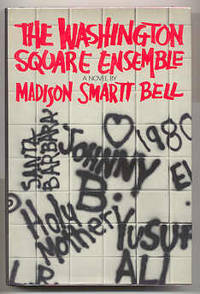 THE WASHINGTON
SQUARE ENSEMBLE
A NOVEL BY
MADISON SMARTT BELL
1980
SANTA
BARBARA
JOHNNY
B.
Holy
Mother
YUSUF
ALI